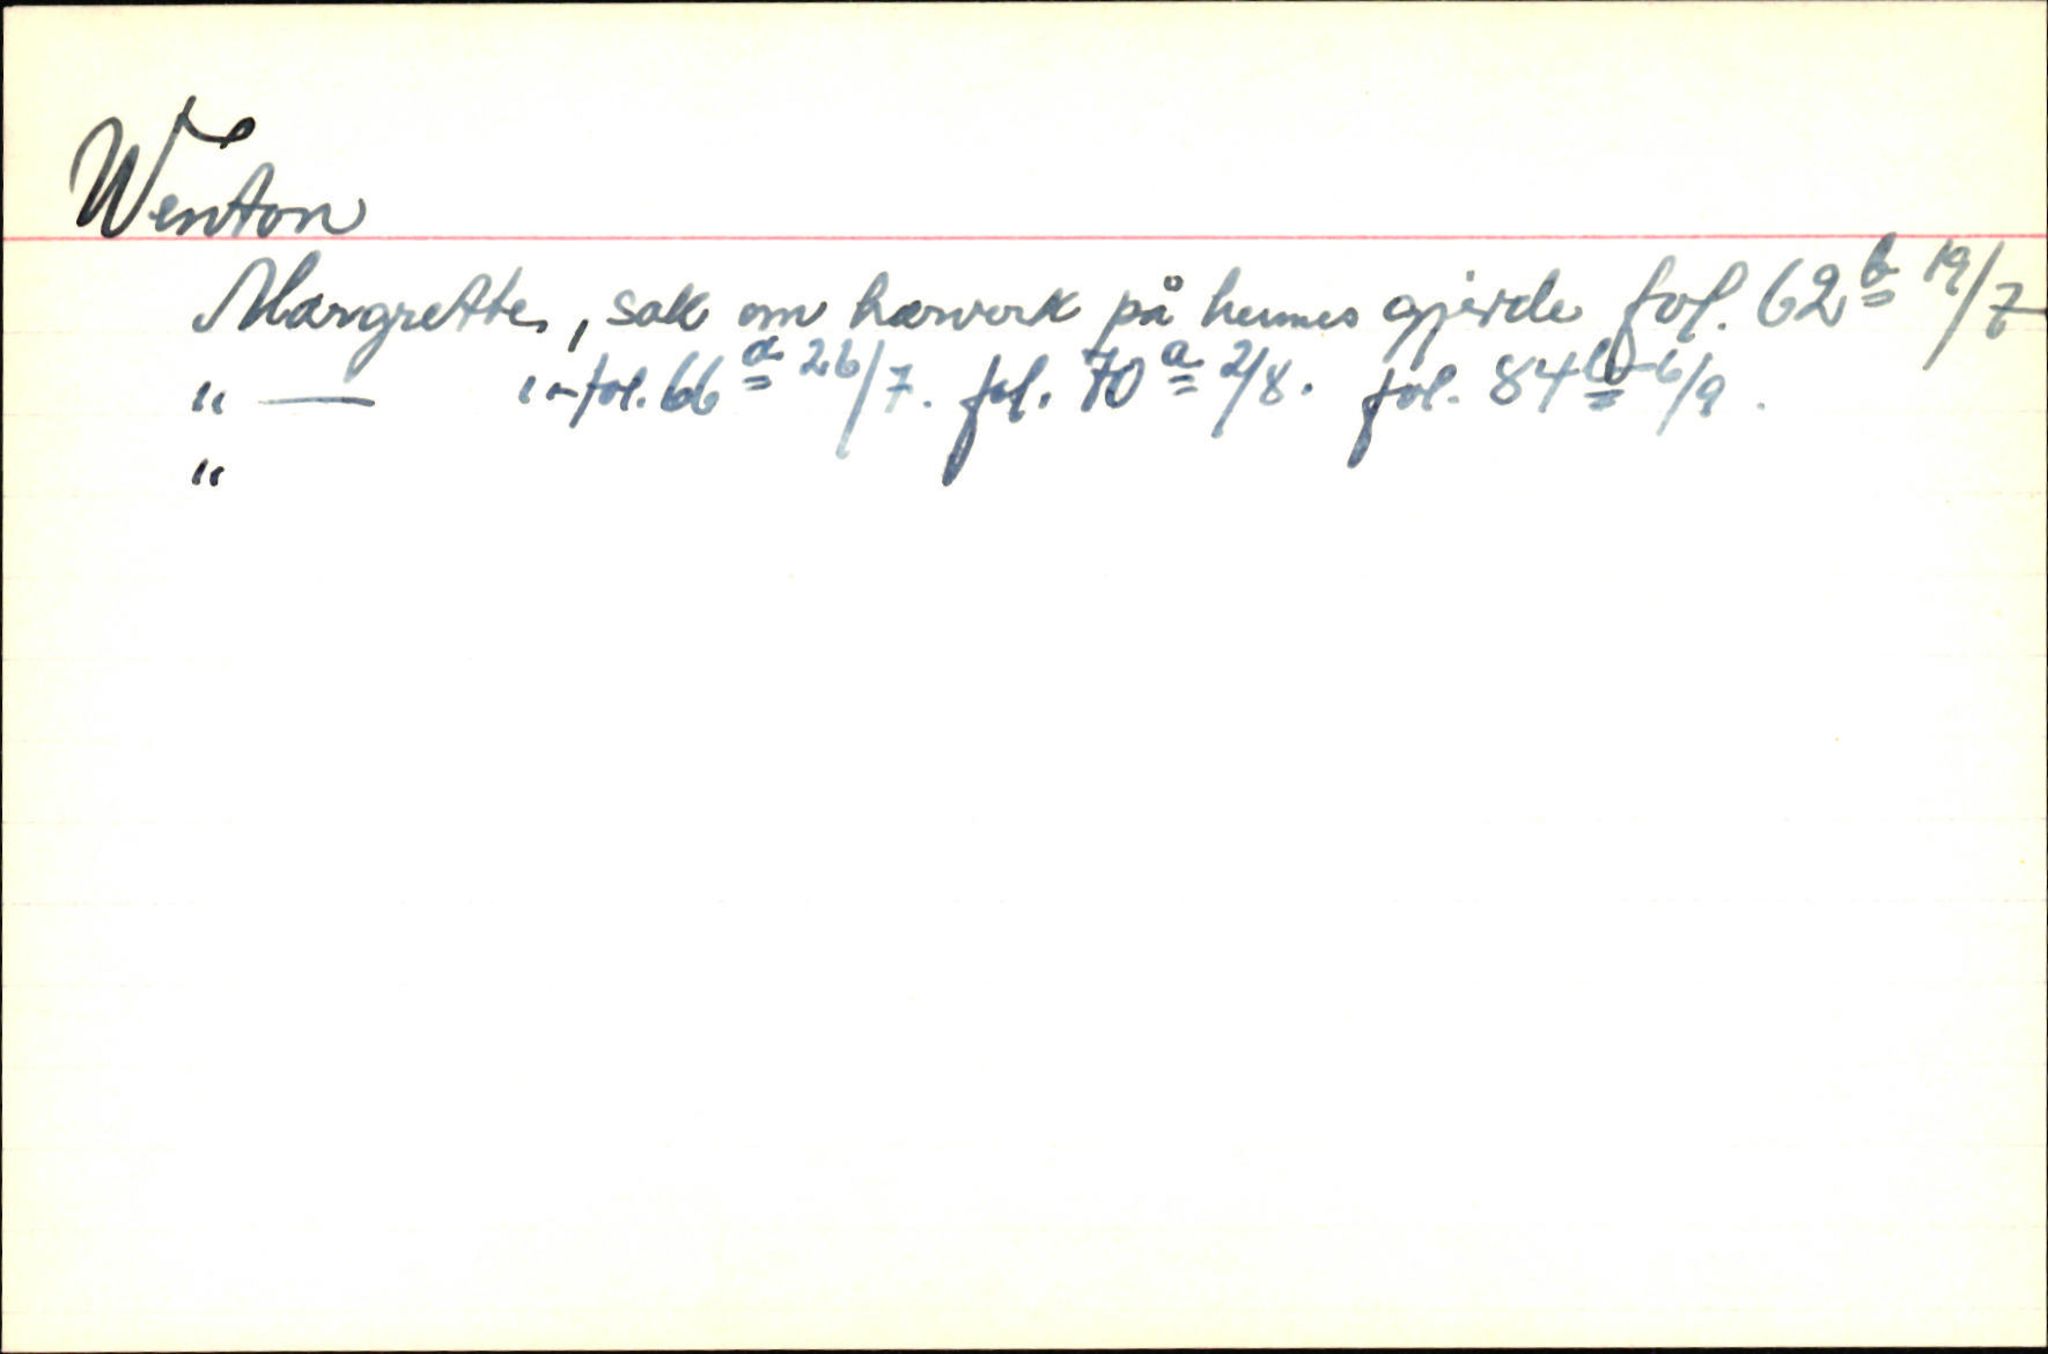 Wenton
Margrethe, sak om hærverk på hennes gjerde fol. 62b 19/7
" — " - fol. 66a 26/7. fol. 70a 2/8. fol. 84b 6/9.
"